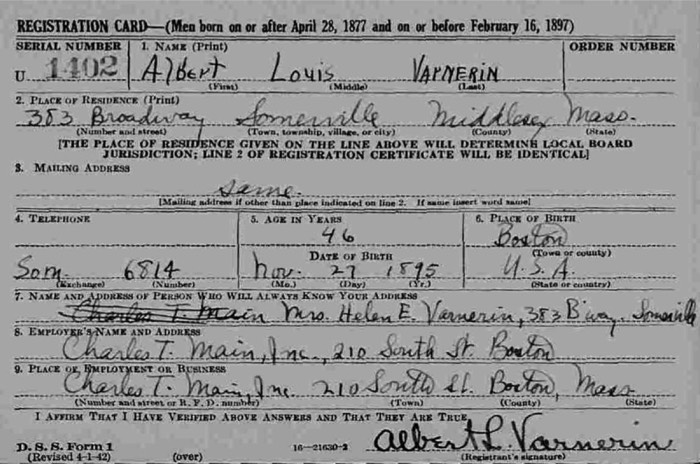 REGISTRATION CARD—(Men born on or after April 28, 1877 and on or before February 16, 1897)
SERIAL NUMBER 1. NAME (Print) ORDER NUMBER
U 1402 Albert Louis VARNERIN
(First) (Middle) (Last)
2. PLACE OF RESIDENCE (Print)
383 Broadway Somerville Middlesex Mass.
(Number and street) (Town, township, village, or city) (County) (State)
[THE PLACE OF RESIDENCE GIVEN ON THE LINE ABOVE WILL DETERMINE LOCAL BOARD
JURISDICTION; LINE 2 OF REGISTRATION CERTIFICATE WILL BE IDENTICAL]
3. MAILING ADDRESS
same.
[Mailing address if other than place indicated on line 2. If same insert word same]
4. TELEPHONE 5. AGE IN YEARS 6. PLACE OF BIRTH
46 Boston
DATE OF BIRTH (Town or county)
Som. 6814 Nov. 27 1895 U.S.A.
(Exchange) (Number) (Mo.) (Day) (Yr.) (State or country)
7. NAME AND ADDRESS OF PERSON WHO WILL ALWAYS KNOW YOUR ADDRESS
Charles T. Main Mrs. Helen E. Varnerin, 383 B'way. Somerville
8. EMPLOYER'S NAME AND ADDRESS
Charles T. Main, Inc., 210 South St. Boston
9. PLACE OF EMPLOYMENT OR BUSINESS
Charles T. Main, Inc. 210 South St. Boston, Mass
(Number and street or R. F. D. number) (Town) (County) (State)
I AFFIRM THAT I HAVE VERIFIED ABOVE ANSWERS AND THAT THEY ARE TRUE.
D. S. S. Form 1 16—21630-2 Albert L. Varnerin
(Revised 4-1-42) (over) (Registrant's signature)